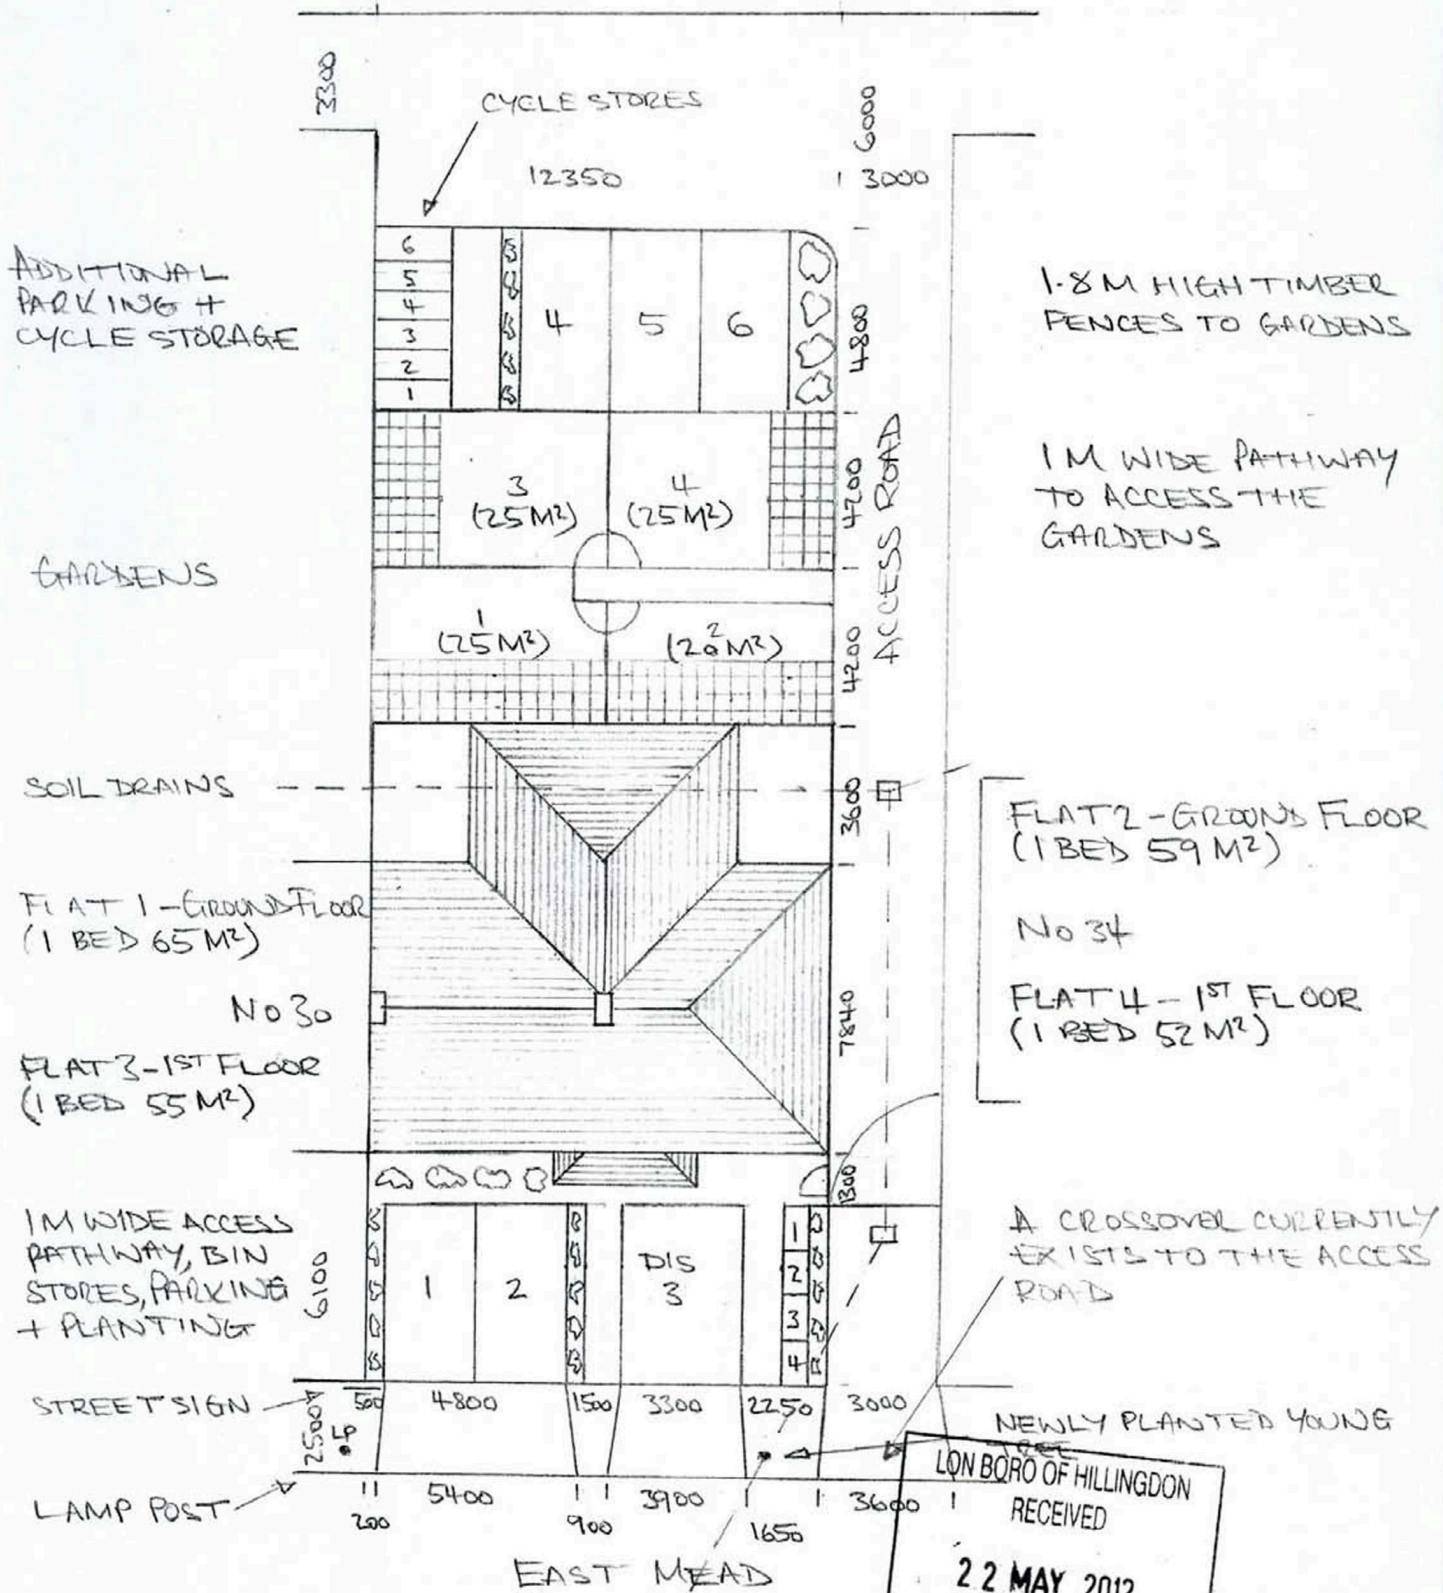 3300
CYCLE STORES
6000
12350
3000
ADDITIONAL
PARKING +
CYCLE STORAGE
6
5
4
3
2
1
4
5
6
4800
1.8 M HIGH TIMBER
FENCES TO GARDENS
1 M WIDE PATHWAY
TO ACCESS THE
GARDENS
3
(25 M²)
4
(25 M²)
4200
ACCESS ROAD
GARDENS
1
(25 M²)
2
4200
SOIL DRAINS
3600
FLAT 2 - GROUND FLOOR
(1 BED 59 M²)
FLAT 1 - GROUND FLOOR
(1 BED 65 M²)
No 34
No 30
FLAT 4 - 1ST FLOOR
(1 BED 52 M²)
7840
FLAT 3 - 1ST FLOOR
(1 BED 55 M²)
1300
1M WIDE ACCESS
PATHWAY, BIN
STORES, PARKING
+ PLANTING
6100
1
2
DIS
3
1
2
3
4
A CROSSOVER CURRENTLY
EXISTS TO THE ACCESS
ROAD
STREET SIGN
2500
LP
500
4800
1500
3300
2250
3000
NEWLY PLANTED YOUNG
LAMP POST
200
5400
900
3900
1650
3600
EAST MEAD
LON BORO OF HILLINGDON
RECEIVED
22 MAY 2012